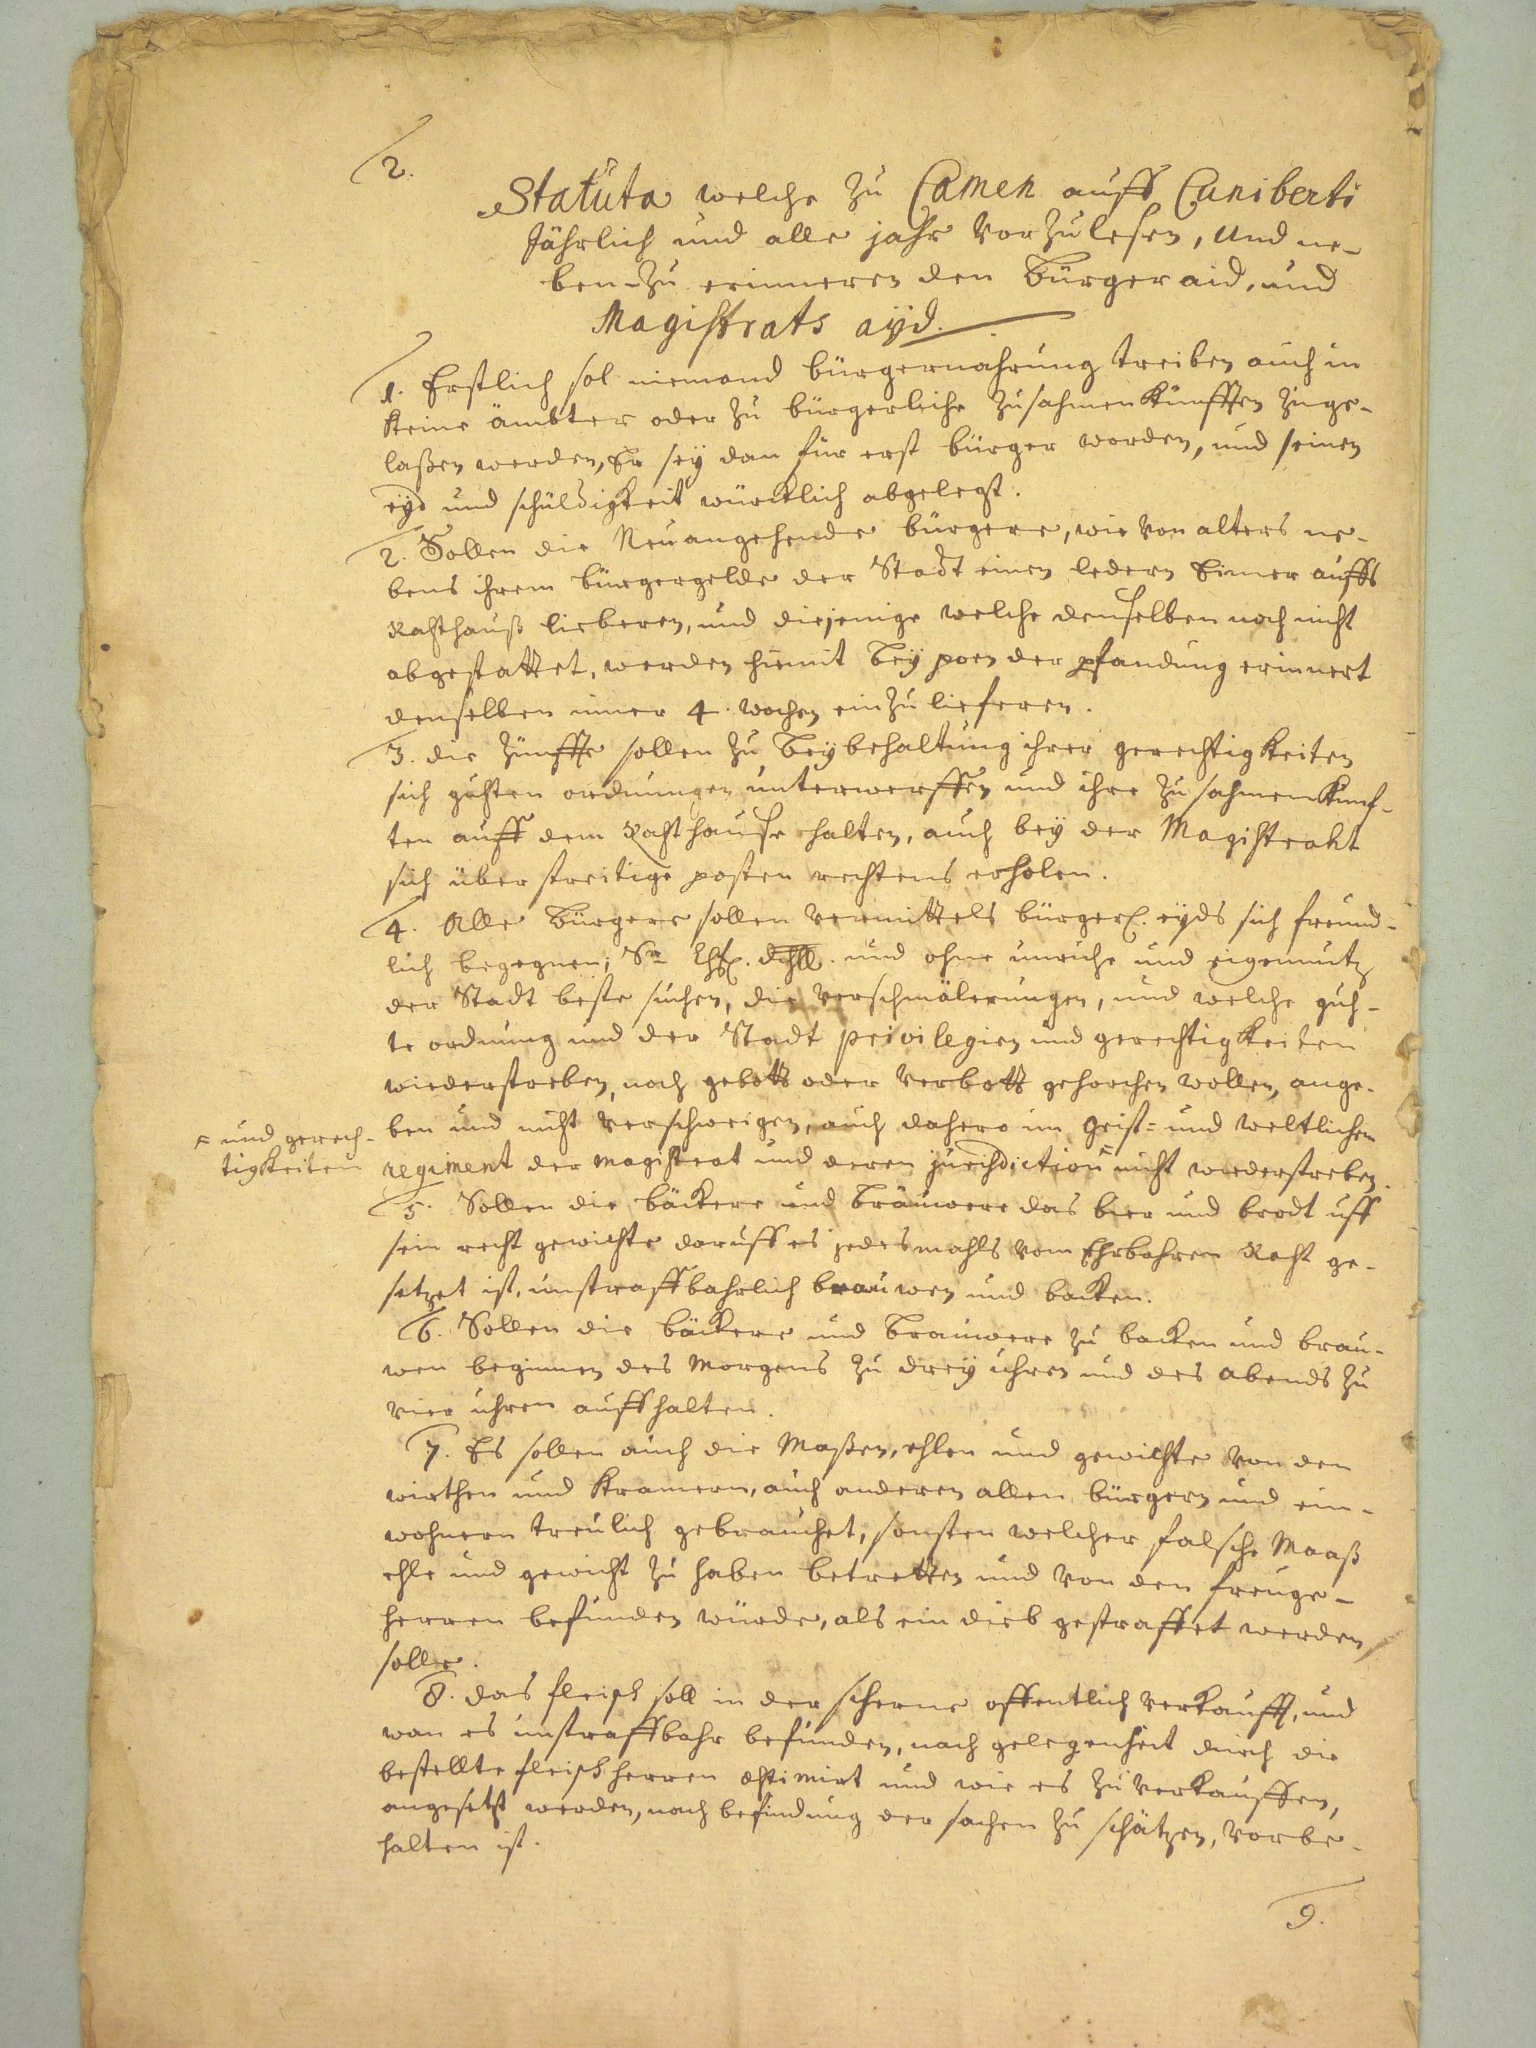 2.
Statuta welche zu Camen auff Cuniberti
Jährlich und alle jahr vorzulesen, und ne-
ben zu erinneren den bürger aid, und
Magistrats aÿd.
1. Erstlich sol niemand bürgernahrung treiben auch in
keine ämbter oder zu bürgerliche zusahmenkünfften zuge-
laßen werden, Er seÿ dan für erst bürger worden, und seinen
eÿd und schüldigkeit würcklich abgelegt.
2. Sollen die Neuangehende bürgere, wie von alters ne-
bens ihrem bürgergelde der Stadt einen ledern Eimer auffs
Rahthauß lieberen, und diejenige welche denselben noch nicht
abgestattet, werden hiemit beÿ poen der pfandung erinnert
denselben inner 4. wochen einzulieferen.
3. die Zünffte sollen zu beÿbehaltung ihrer gerechtigkeiten
sich guhten ordnungen unterwerffen und ihre zusahmenkunf-
ten auff dem Rahthause halten, auch beÿ der Magistraht
sich über streitige posten rechtens erholen.
4. Alle bürgere sollen vermittels bürgerl. eÿds sich freund-
lich begegnen, Sr. Chf. dhll. und ohne unruhe und eigennutz
der Stadt beste suchen, die verschmälerungen, und welche guh-
te ordnung und der Stadt privilegien und gerechtigkeiten
wiederstreben, noch gebotts oder verbotts gehorchen wollen, ange-
ben und nicht verschweigen, auch dahero im Geist- und weltlichen
= und gerech-
tigkeiten
regiment der magistrat und deren jurisdiction = nicht wiederstreben.
5. Sollen die bäckere und bräuwere das bier und brodt uff
sein recht gewichte daruff es jedesmahls vom Ehrbahren Raht ge-
setzet ist, unstraffbahrlich brauwen und backen.
6. Sollen die bäckere und brauwere zu backen und brau-
wen beginnen des Morgens zu dreÿ uhren und des abends zu
vier uhren auffhalten.
7. Es sollen auch die Maßen, ehlen und gewichte von den
wirthen und kramern, auch anderen allen bürgern und ein-
wohnern treulich gebrauchet, sonsten welcher falsche Maaß
ehle und gewicht zu haben betretten und von den freuge-
herren befunden würde, als ein dieb gestraffet werden
solle.
8. das fleisch soll in der scherne offentlich verkaufft, und
wan es unstraffbahr befunden, nach gelegenheit durch die
bestellte fleischherren æstimirt und wie es zu verkauffen,
angesetzt werden, nach befindung der sachen zu schätzen, vorbe-
halten ist.
9.